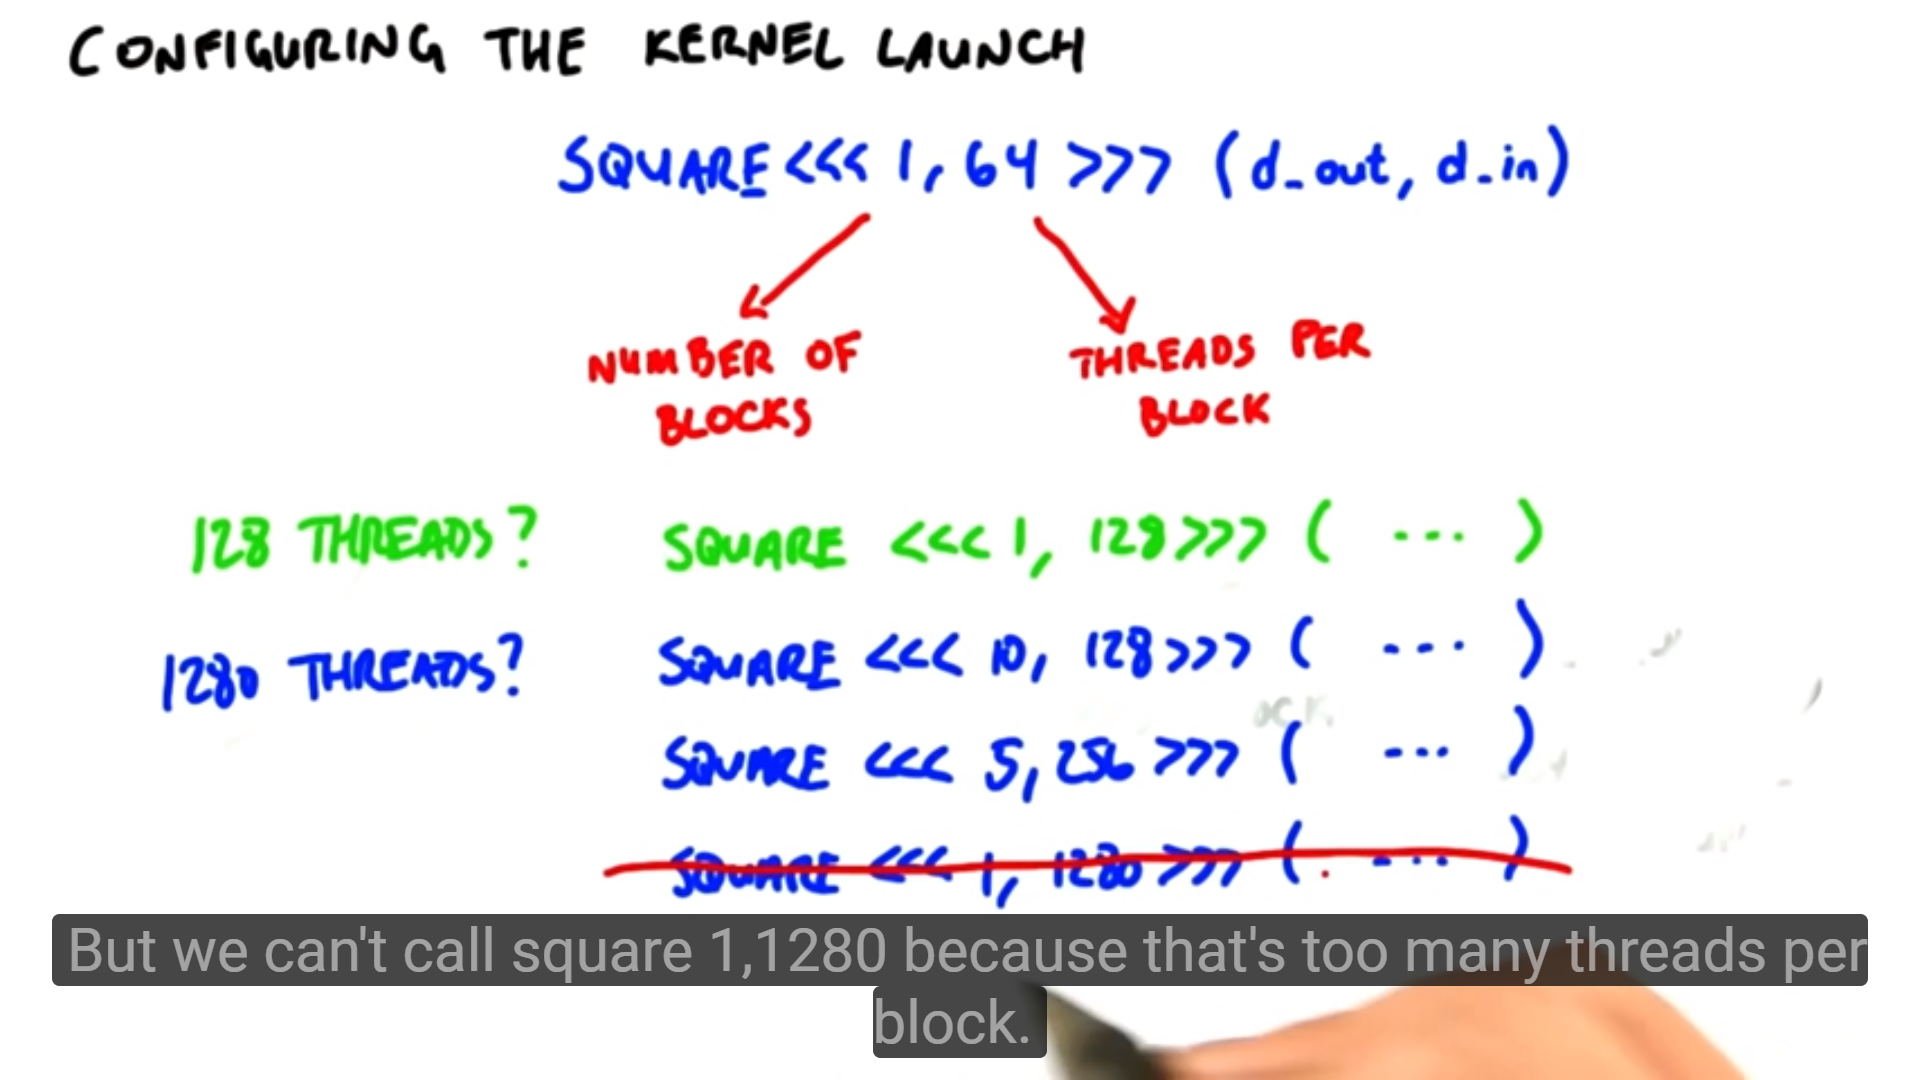 CONFIGURING THE KERNEL LAUNCH
SQUARE <<< 1, 64 >>> (d_out, d_in)
NUMBER OF BLOCKS
THREADS PER BLOCK
128 THREADS? SQUARE <<< 1, 128 >>> ( ... )
1280 THREADS? SQUARE <<< 10, 128 >>> ( ... )
SQUARE <<< 5, 256 >>> ( ... )
SQUARE <<< 1, 1280 >>> ( ... )
But we can't call square 1,1280 because that's too many threads per
block.